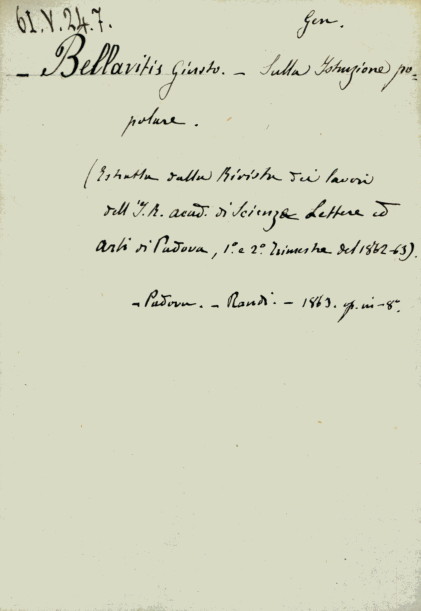 61.V.24.7.
Gen.
– Bellavitis Giusto. – Sulla Istruzione po-
polare.
(Estratta dalla Rivista dei lavori
dell'I. R. acad. di Scienze Lettere ed
arti di Padova, 1º e 2º Trimestre del 1862-63).
– Padova. – Randi. – 1863. op. in-8º.